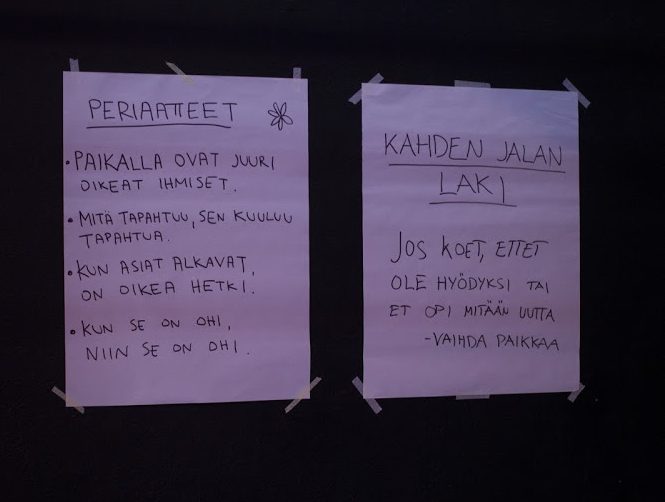 PERIAATTEET
• PAIKALLA OVAT JUURI
OIKEAT IHMISET.
• MITÄ TAPAHTUU, SEN KUULUU
TAPAHTUA.
• KUN ASIAT ALKAVAT,
ON OIKEA HETKI.
• KUN SE ON OHI,
NIIN SE ON OHI.
KAHDEN JALAN
LAKI
JOS KOET, ETTET
OLE HYÖDYKSI TAI
ET OPI MITÄÄN UUTTA
-VAIHDA PAIKKAA